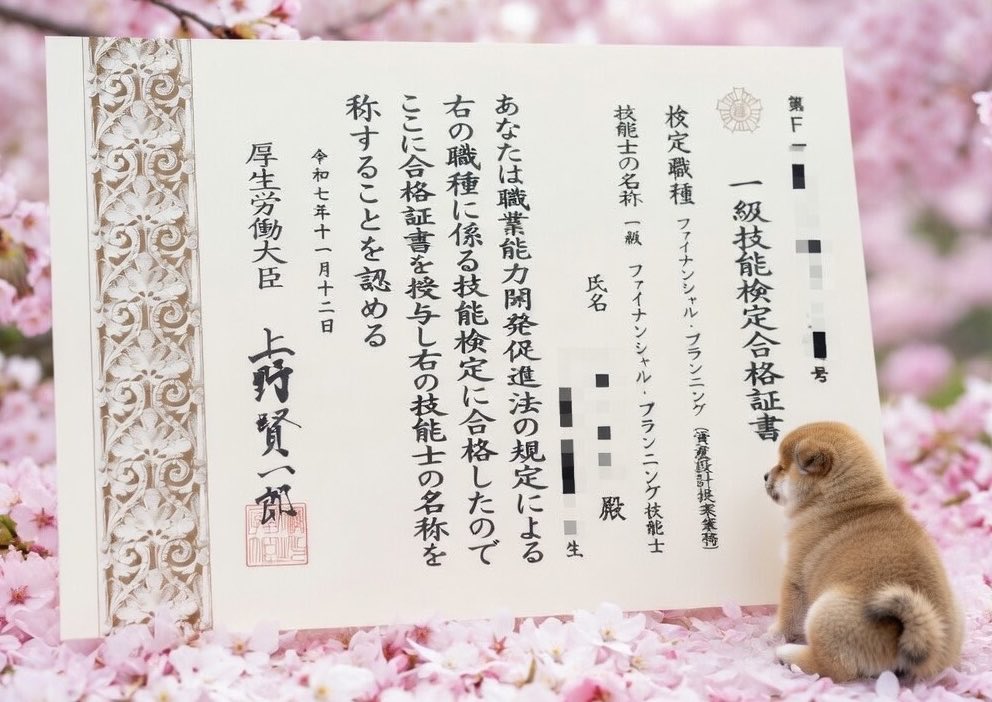 第F一 号
一級技能検定合格証書
検定職種 ファイナンシャル・プランニング(資産設計提案業務)
技能士の名称 一級 ファイナンシャル・プランニング技能士
氏名 殿
生
あなたは職業能力開発促進法の規定による
右の職種に係る技能検定に合格したので
ここに合格証書を授与し右の技能士の名称を
称することを認める
令和七年十一月十二日
厚生労働大臣 上野賢一郎